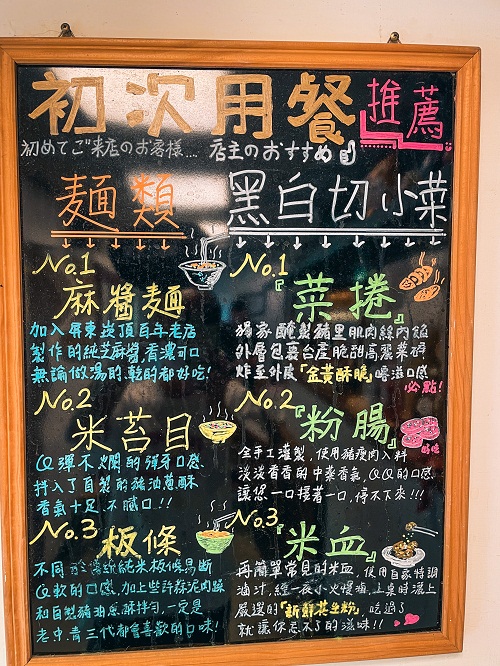 初次用餐 推薦
初めてご来店のお客様.... 店主のおすすめ
麵類
No.1
麻醬麵
加入屏東崁頂百年老店
製作的純芝麻醬,香濃可口
無論做湯的、乾的都好吃!
No.2
米苔目
QQ彈不爛的彈牙口感
拌入了自製的豬油蔥酥
香氣十足 不膩口!!
No.3
板條
不同於傳統純米板條易斷
Q軟的口感,加上些許蒜泥肉燥
和自製豬油蔥酥拌勻,一定是
老中青三代都會喜歡的口味!
黑白切小菜
No.1
『菜捲』
獨家醃製豬里肌肉絲內餡
外層包裹台產脆甜高麗菜碎
炸至外皮「金黃酥脆」嚐滋口感
必點!
No.2
『粉腸』
全手工灌製,使用豬瘦肉入料
淡淡香香的中藥香氣,QQ的口感
讓您一口接著一口,停不下來!!!
No.3
『米血』
再簡單常見的米血,使用自家特調
滷汁,經一夜小火慢燉,上桌時灑上
嚴選的「新鮮花生粉」吃過了
就讓你忘不了的滋味!!